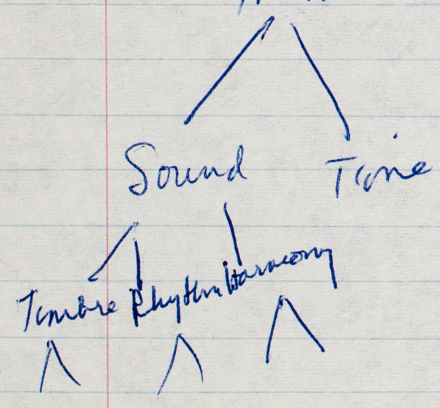 Sound Time
Timbre Rhythm Harmony